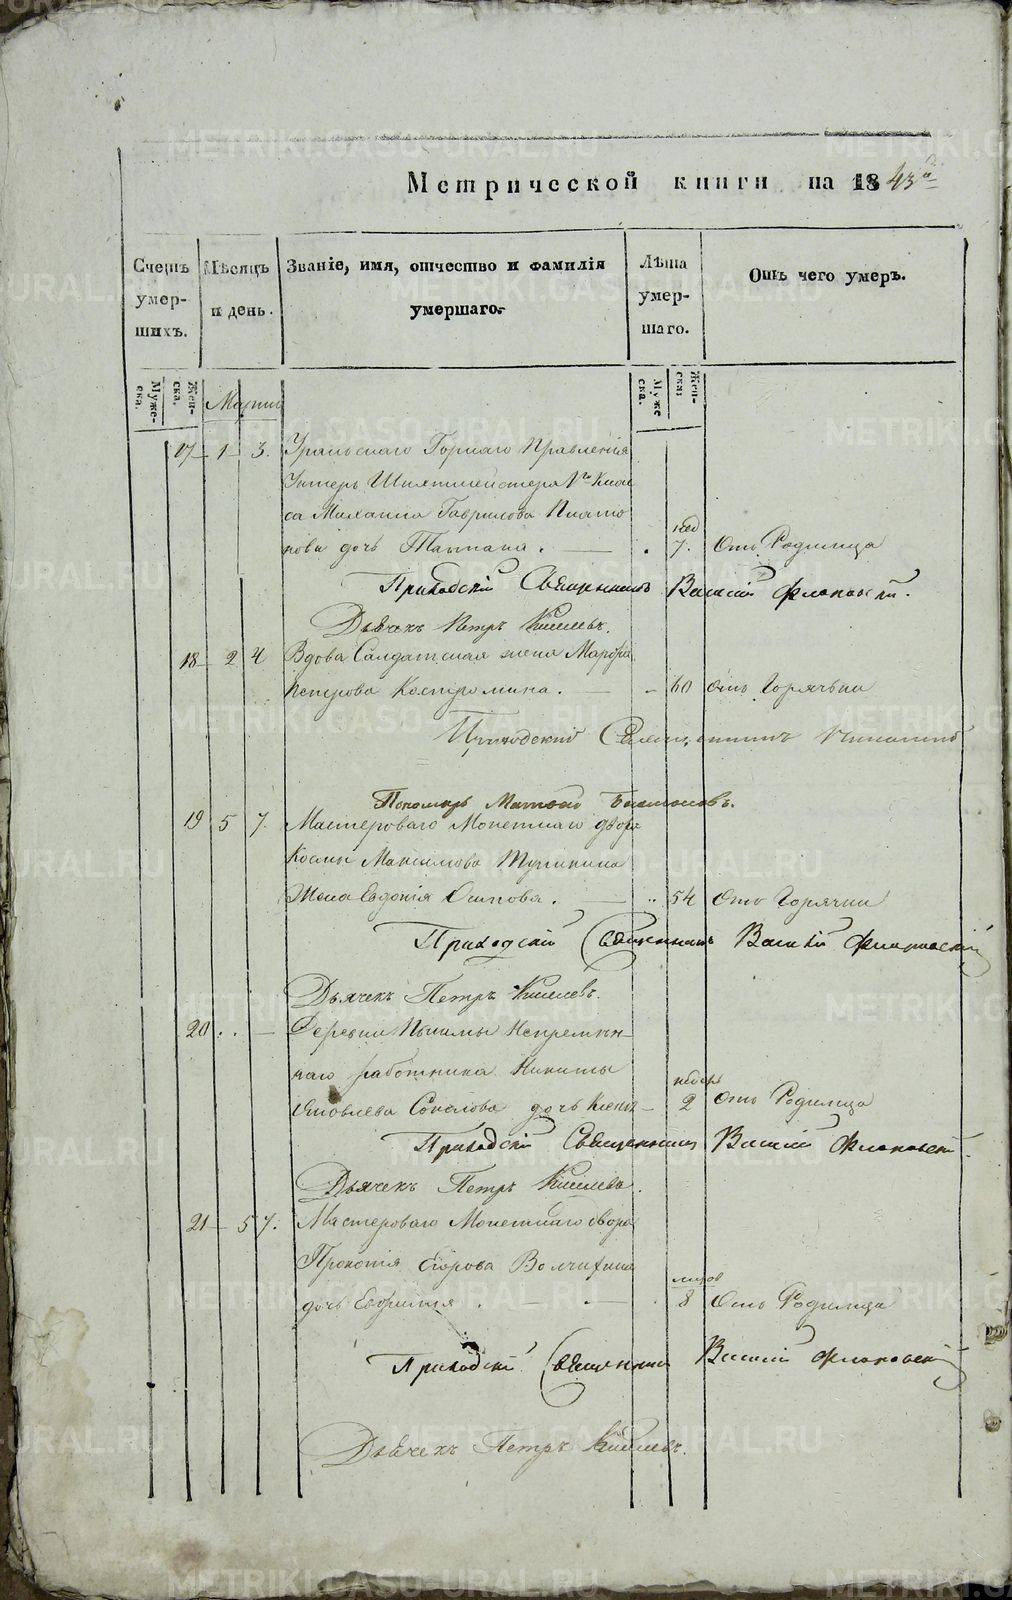 Метрической книги на 1843й
Счетъ умер- шихъ.
Мѣсяцъ и день.
Званіе, имя, отчество и фамилія умершаго.
Лѣта умер- шаго.
Отъ чего умеръ.
Муже- ска.
Жен- ска.
Мартъ
Муже ска.
Жен- ска:
17 1 3. Уральскаго Горнаго Правленія
Унтеръ Шихтмейстера 1го Клас
са Михаила Гаврилова Плато
нед
нова дочь Татіана. 7. Отъ Родимца
Приходскій Священникъ Василій
Дьячекъ Петръ Киселевъ.
18 2 4 Вдова Солдатская жена Марфа
Петрова Костромина. 60 Отъ Горячки
Приходскій Священникъ
Пономарь
19 5 7. Мастероваго Монетнаго двора
Козмы Максимова
Жена Евдокія Осипова. 54 Отъ Горячки
Приходскій Священникъ Василій
Дьячекъ Петръ Киселевъ.
20 Деревни Пышмы Непремѣн-
наго работника Никиты
недѣль
Яковлева Соколова дочь 2 Отъ Родимца
Приходскій Священникъ Василій
Дьячекъ Петръ Киселевъ.
21 5 7. Мастероваго Монетнаго двора
Прокопія Егорова Волчихина
дочь 8 Отъ Родимца
Приходскій Священникъ Василій
Дьячекъ Петръ Киселевъ.
METRIKI.GASO-URAL.RU